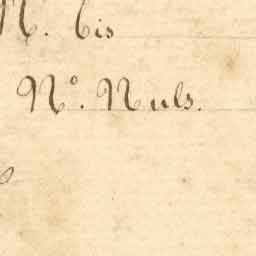 N. bis
Nº. Nuls.